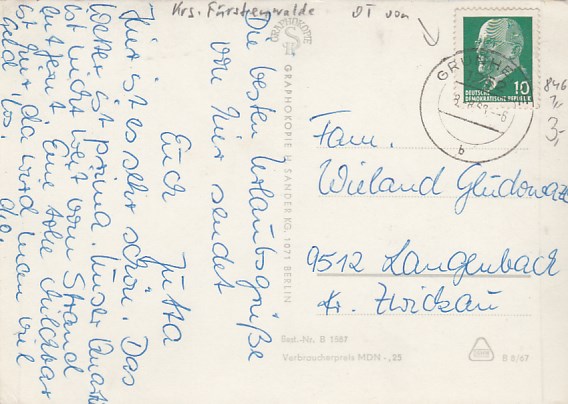 Krs. Fürstenwalde OT von
Die besten Urlaubsgrüße
von hier sendet
Euch Jutta
Hier ist es sehr schön. Das
Wetter ist prima. Unser Quartier
ist nicht weit vom Strand
entfernt. Eine tolle Milchbar
ist hier da wird man viel
Geld los.
GRAPHOKOPIE
GRAPHOKOPIE H. SANDER KG, 1071 BERLIN
DEUTSCHE
DEMOKRATISCHE REPUBLIK
10
b
846
3,-
Fam.
Wieland
9512 Langenbach
Kr. Zwickau
Best.-Nr. B 1587
Verbraucherpreis MDN -,25
B 8/67